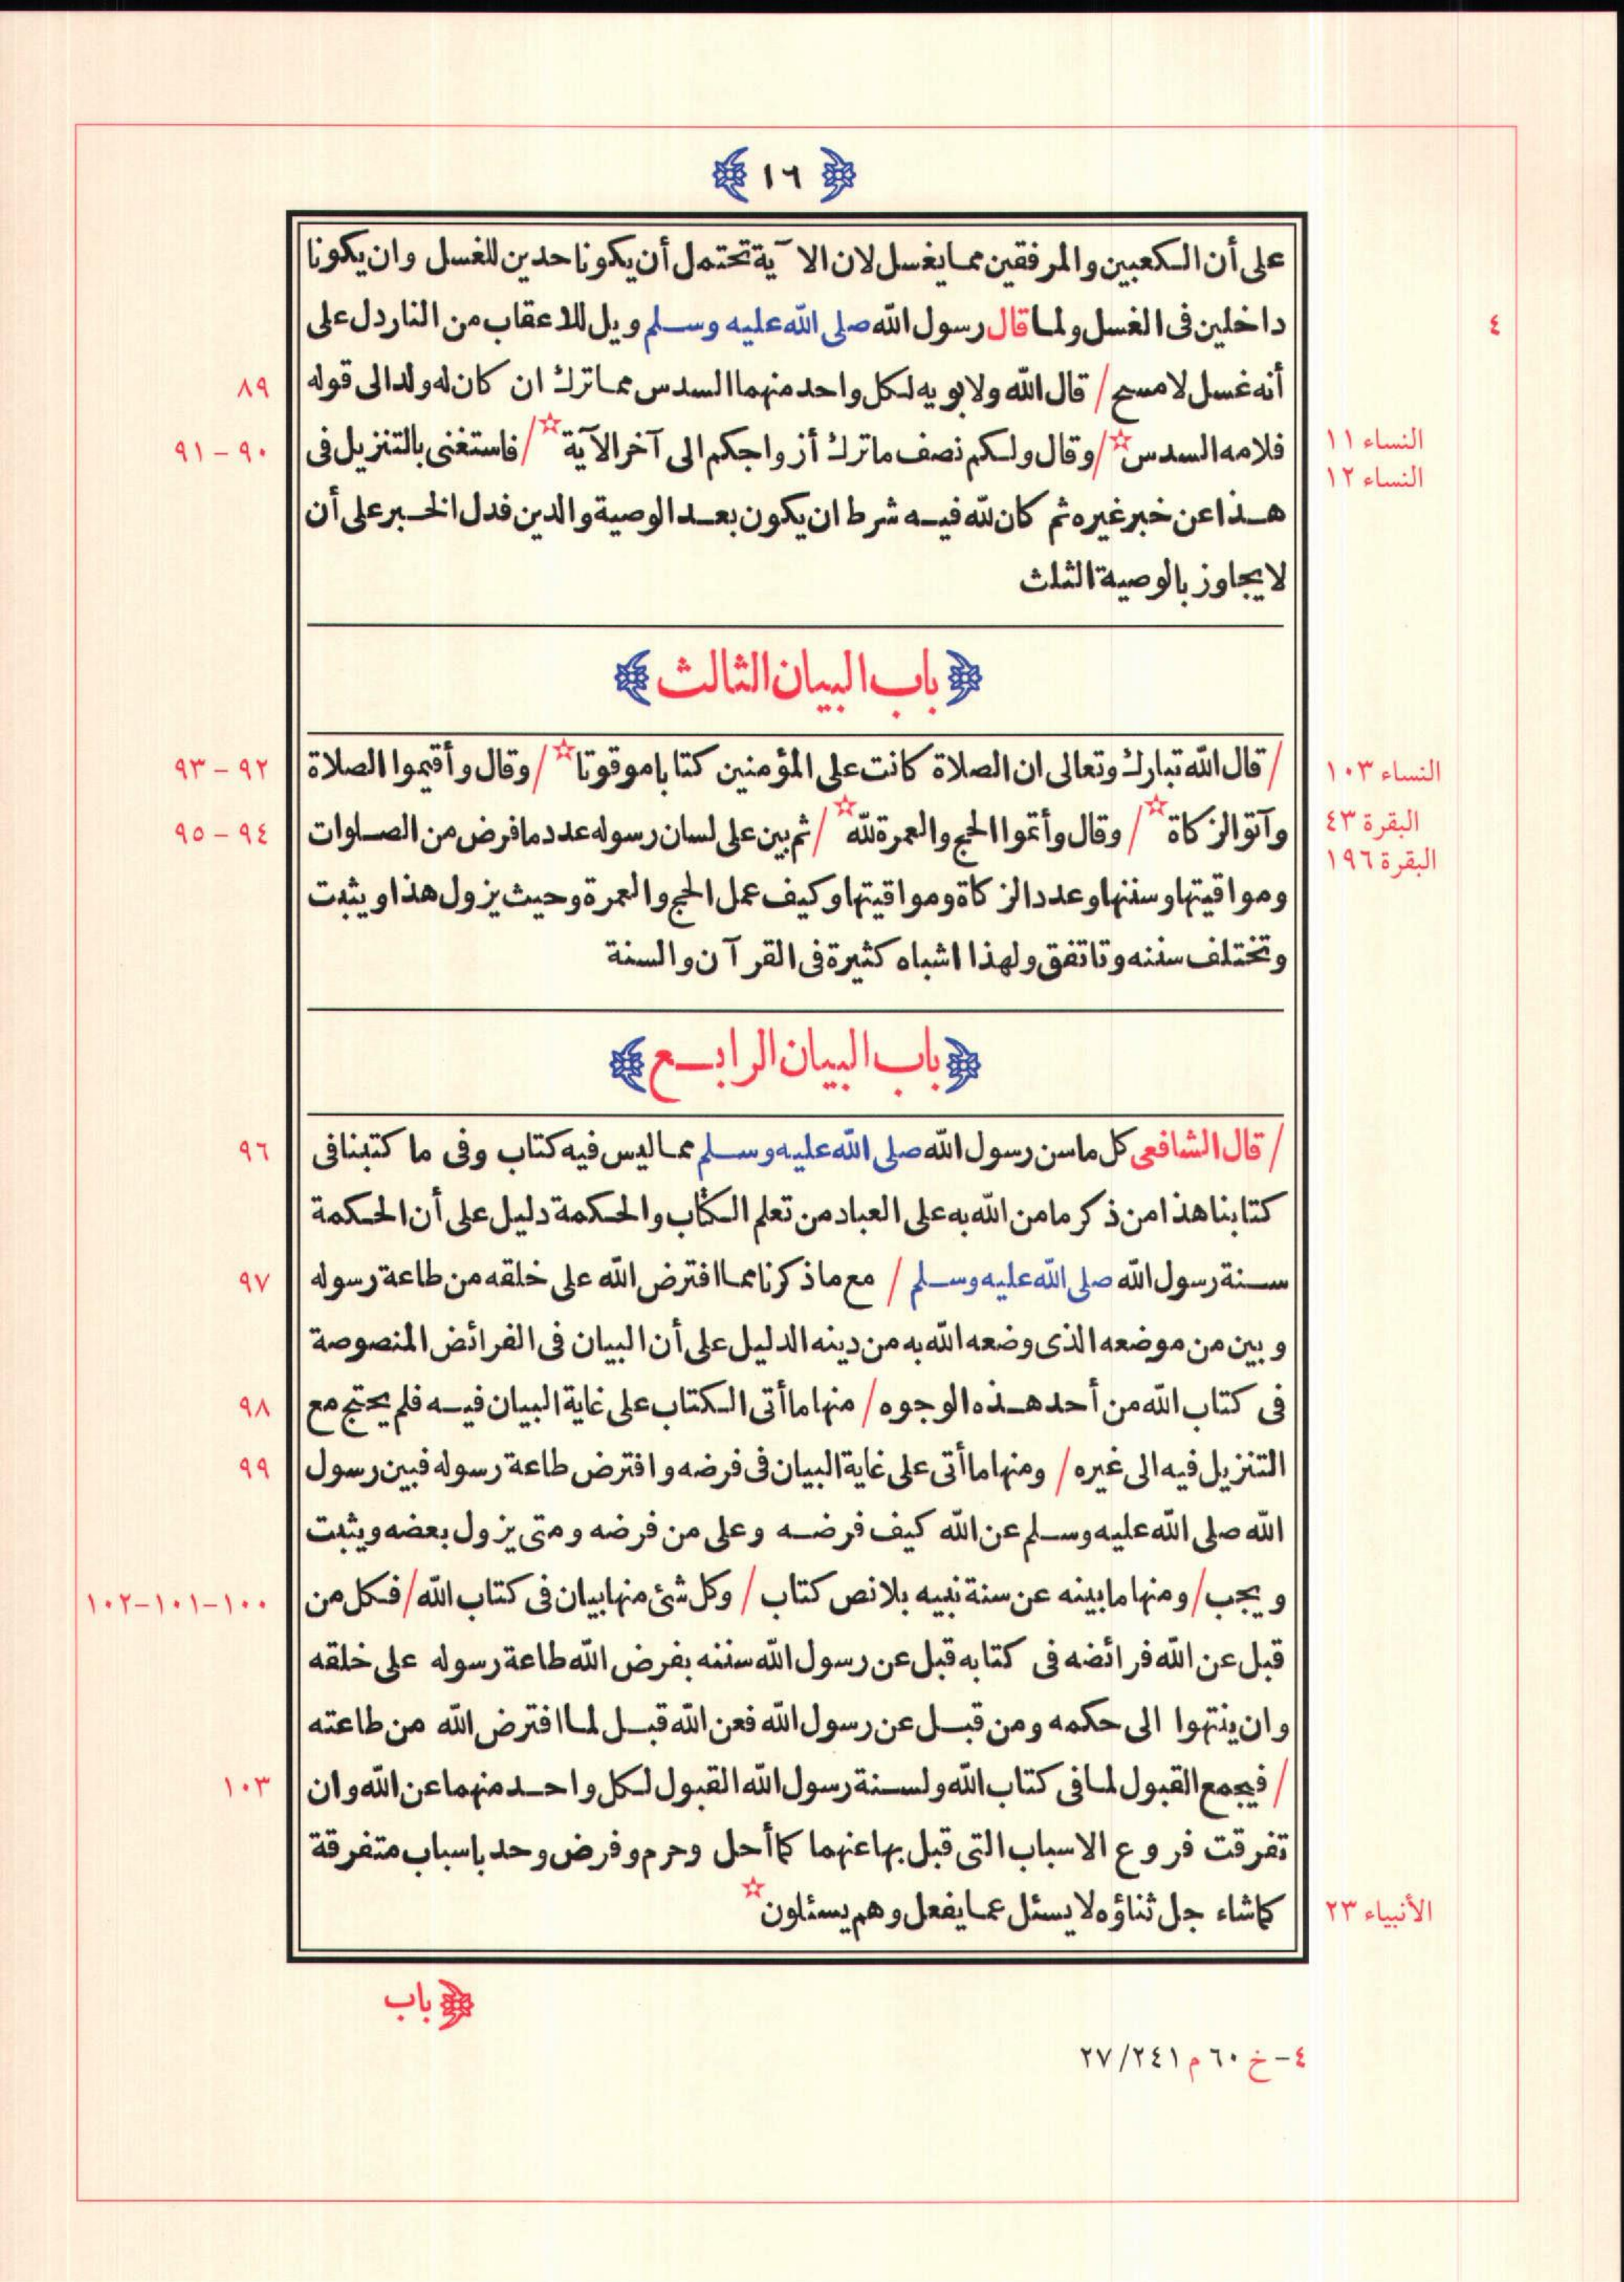 ١٦
على أن الكعبين والمرفقين مما يغسل لان الآية تحتمل أن يكونا حدين للغسل وان يكونا
داخلين فى الغسل ولما قال رسول الله صلى الله عليه وسلم ويل للاعقاب من النار دل على
٤
أنه غسل لا مسح / قال الله ولابويه لكل واحد منهما السدس مما ترك ان كان له ولد الى قوله
٨٩
فلامه السدس☆ / وقال ولكم نصف ما ترك أزواجكم الى آخر الآية☆ / فاستغنى بالتنزيل فى
النساء ١١
النساء ١٢
٩٠ - ٩١
هذا عن خبر غيره ثم كان لله فيه شرط ان يكون بعد الوصية والدين فدل الخبر على أن
لا يجاوز بالوصية الثلث
باب البيان الثالث
/ قال الله تبارك وتعالى ان الصلاة كانت على المؤمنين كتابا موقوتا☆ / وقال وأقيموا الصلاة
النساء ١٠٣
٩٢ - ٩٣
وآتو الزكاة☆ / وقال وأتموا الحج والعمرة لله☆ / ثم بين على لسان رسوله عدد ما فرض من الصلوات
البقرة ٤٣
البقرة ١٩٦
٩٤ - ٩٥
ومواقيتها وسننها وعدد الزكاة ومواقيتها وكيف عمل الحج والعمرة وحيث يزول هذا ويثبت
وتختلف سننه وتاتفق ولهذا اشباه كثيرة فى القرآن والسنة
باب البيان الرابع
/ قال الشافعى كل ما سن رسول الله صلى الله عليه وسلم مما ليس فيه كتاب وفى ما كتبنا فى
٩٦
كتابنا هذا من ذكر ما من الله به على العباد من تعلم الكتاب والحكمة دليل على أن الحكمة
سنة رسول الله صلى الله عليه وسلم / مع ما ذكرنا مما افترض الله على خلقه من طاعة رسوله
٩٧
وبين من موضعه الذى وضعه الله به من دينه الدليل على أن البيان فى الفرائض المنصوصة
فى كتاب الله من أحد هذه الوجوه / منها ما أتى الكتاب على غاية البيان فيه فلم يحتج مع
٩٨
التنزيل فيه الى غيره / ومنها ما أتى على غاية البيان فى فرضه وافترض طاعة رسوله فبين رسول
٩٩
الله صلى الله عليه وسلم عن الله كيف فرضه وعلى من فرضه ومتى يزول بعضه ويثبت
ويجب / ومنها ما بينه عن سنة نبيه بلا نص كتاب / وكل شئ منها بيان فى كتاب الله / فكل من
١٠٠-١٠١-١٠٢
قبل عن الله فرائضه فى كتابه قبل عن رسول الله سننه بفرض الله طاعة رسوله على خلقه
وان ينتهوا الى حكمه ومن قبل عن رسول الله فعن الله قبل لما افترض الله من طاعته
/ فيجمع القبول لما فى كتاب الله ولسنة رسول الله القبول لكل واحد منهما عن الله وان
١٠٣
تفرقت فروع الاسباب التى قبل بها عنهما كما أحل وحرم وفرض وحد باسباب متفرقة
كما شاء جل ثناؤه لا يسئل عما يفعل وهم يسئلون☆
الأنبياء ٢٣
باب
٤- خ ٦٠ م ٢٤١/٢٧